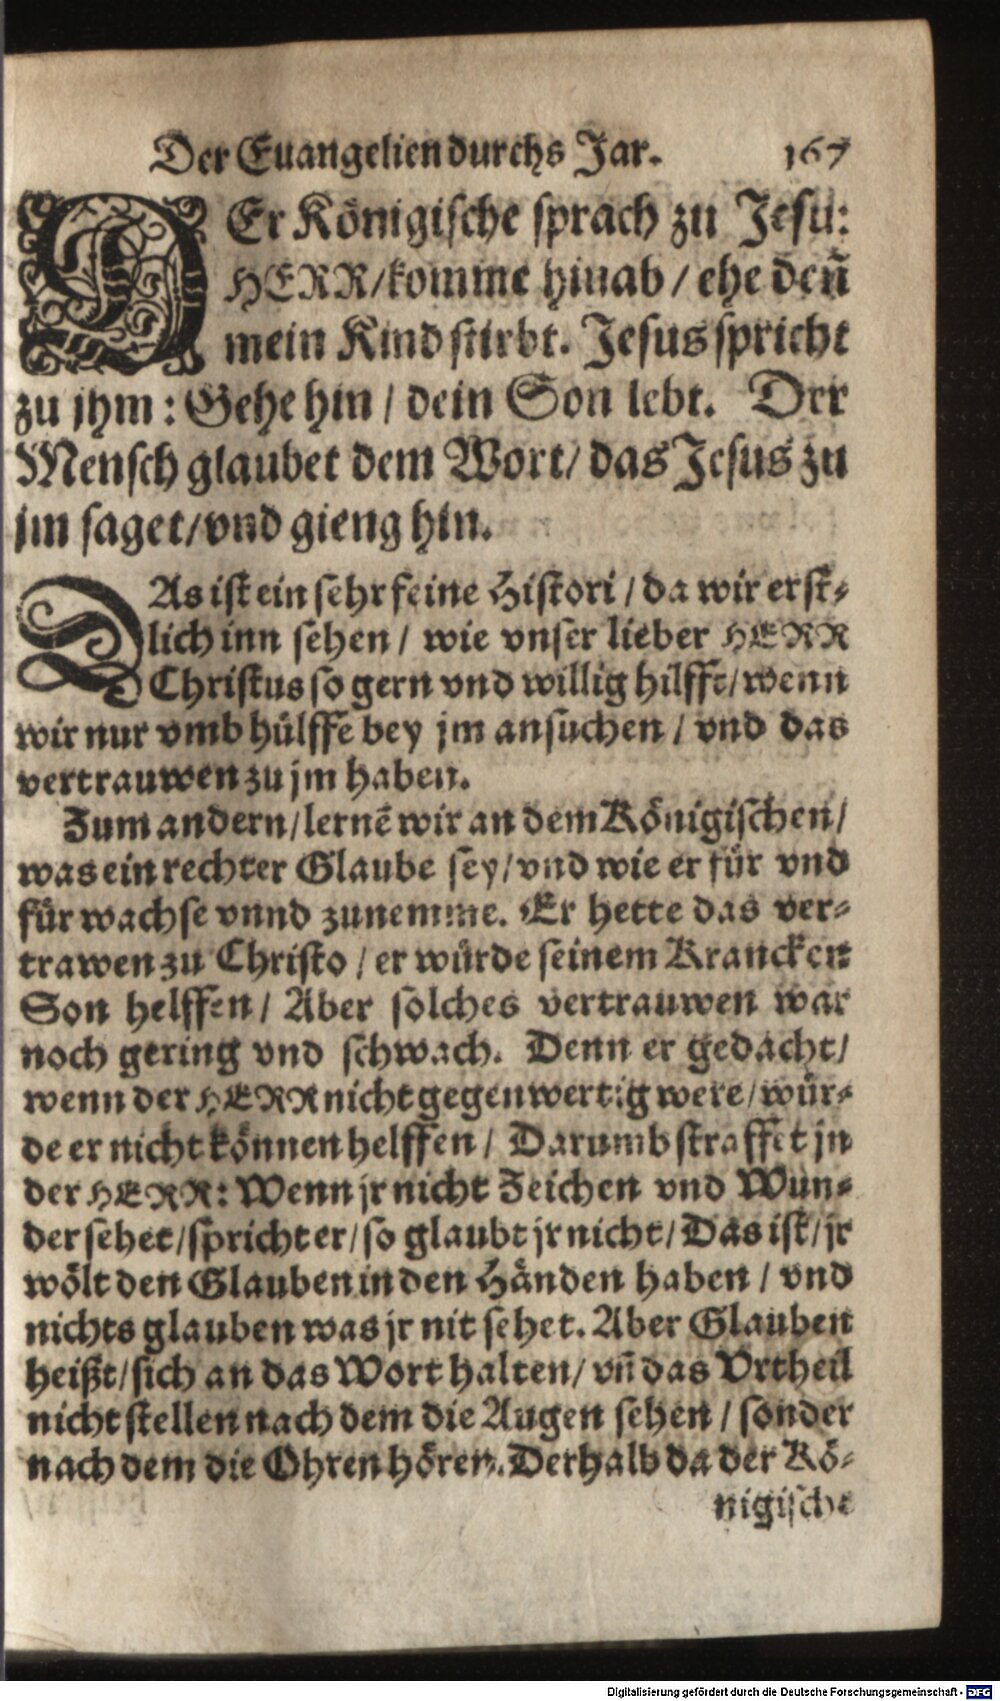 Der Euangelien durchs Jar. 167
DEr Königische sprach zu Jesu:
HERR/komme hinab/ ehe deñ
mein Kind stirbt. Jesus spricht
zu jhm: Gehe hin/ dein Son lebt. Der
Mensch glaubet dem Wort/ das Jesus zu
jm saget/vnd gieng hin.
DAs ist ein sehr feine Histori/ da wir erst-
lich inn sehen/ wie vnser lieber HERR
Christus so gern vnd willig hilfft/wenn
wir nur vmb hülffe bey jm ansuchen/ vnd das
vertrauwen zu jm haben.
Zum andern/lernẽ wir an dem Königischen/
was ein rechter Glaube sey/vnd wie er für vnd
für wachse vnnd zunemme. Er hette das ver-
trawen zu Christo/ er würde seinem Krancken
Son helffen/ Aber solches vertrauwen war
noch gering vnd schwach. Denn er gedacht/
wenn der HERR nicht gegenwertig were/wür-
de er nicht können helffen/ Darumb straffet jn
der HERR: Wenn jr nicht Zeichen vnd Wun-
der sehet/spricht er/so glaubt jr nicht/Das ist/jr
wölt den Glauben in den Händen haben/ vnd
nichts glauben was jr nit sehet. Aber Glauben
heißt/sich an das Wort halten/ vñ das Vrtheil
nicht stellen nach dem die Augen sehen/ sonder
nach dem die Ohren hören. Derhalb da der Kö-
nigische
Digitalisierung gefördert durch die Deutsche Forschungsgemeinschaft - DFG